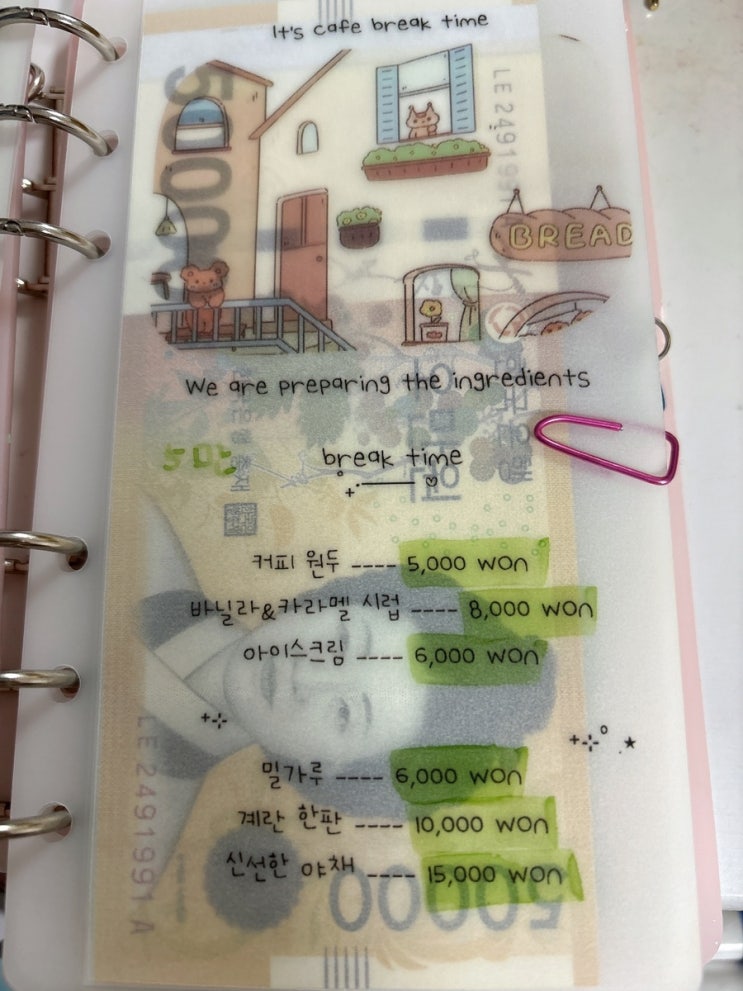 It's cafe break time
50000
LE 2491991
BREAD
We are preparing the ingredients
한국은행
오만원
break time
커피 원두 ---- 5,000 won
바닐라&카라멜 시럽 ---- 8,000 won
아이스크림 ---- 6,000 won
밀가루 ---- 6,000 won
계란 한판 ---- 10,000 won
신선한 야채 ---- 15,000 won
LE 2491991 A
50000